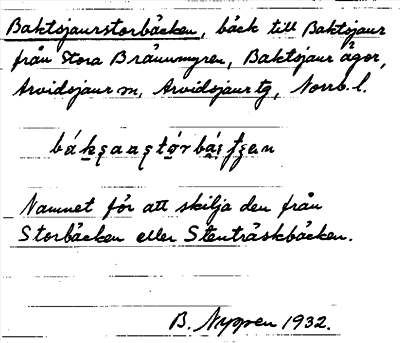 Baktsjaurstorbäcken, bäck till Baktsjaur
från Stora Brännmyren, Baktsjaur ägor,
Arvidsjaur sn, Arvidsjaur tg, Norrb. l.
Namnet för att skilja den från
Storbäcken eller Stenträskbäcken.
B. Nyman 1932.